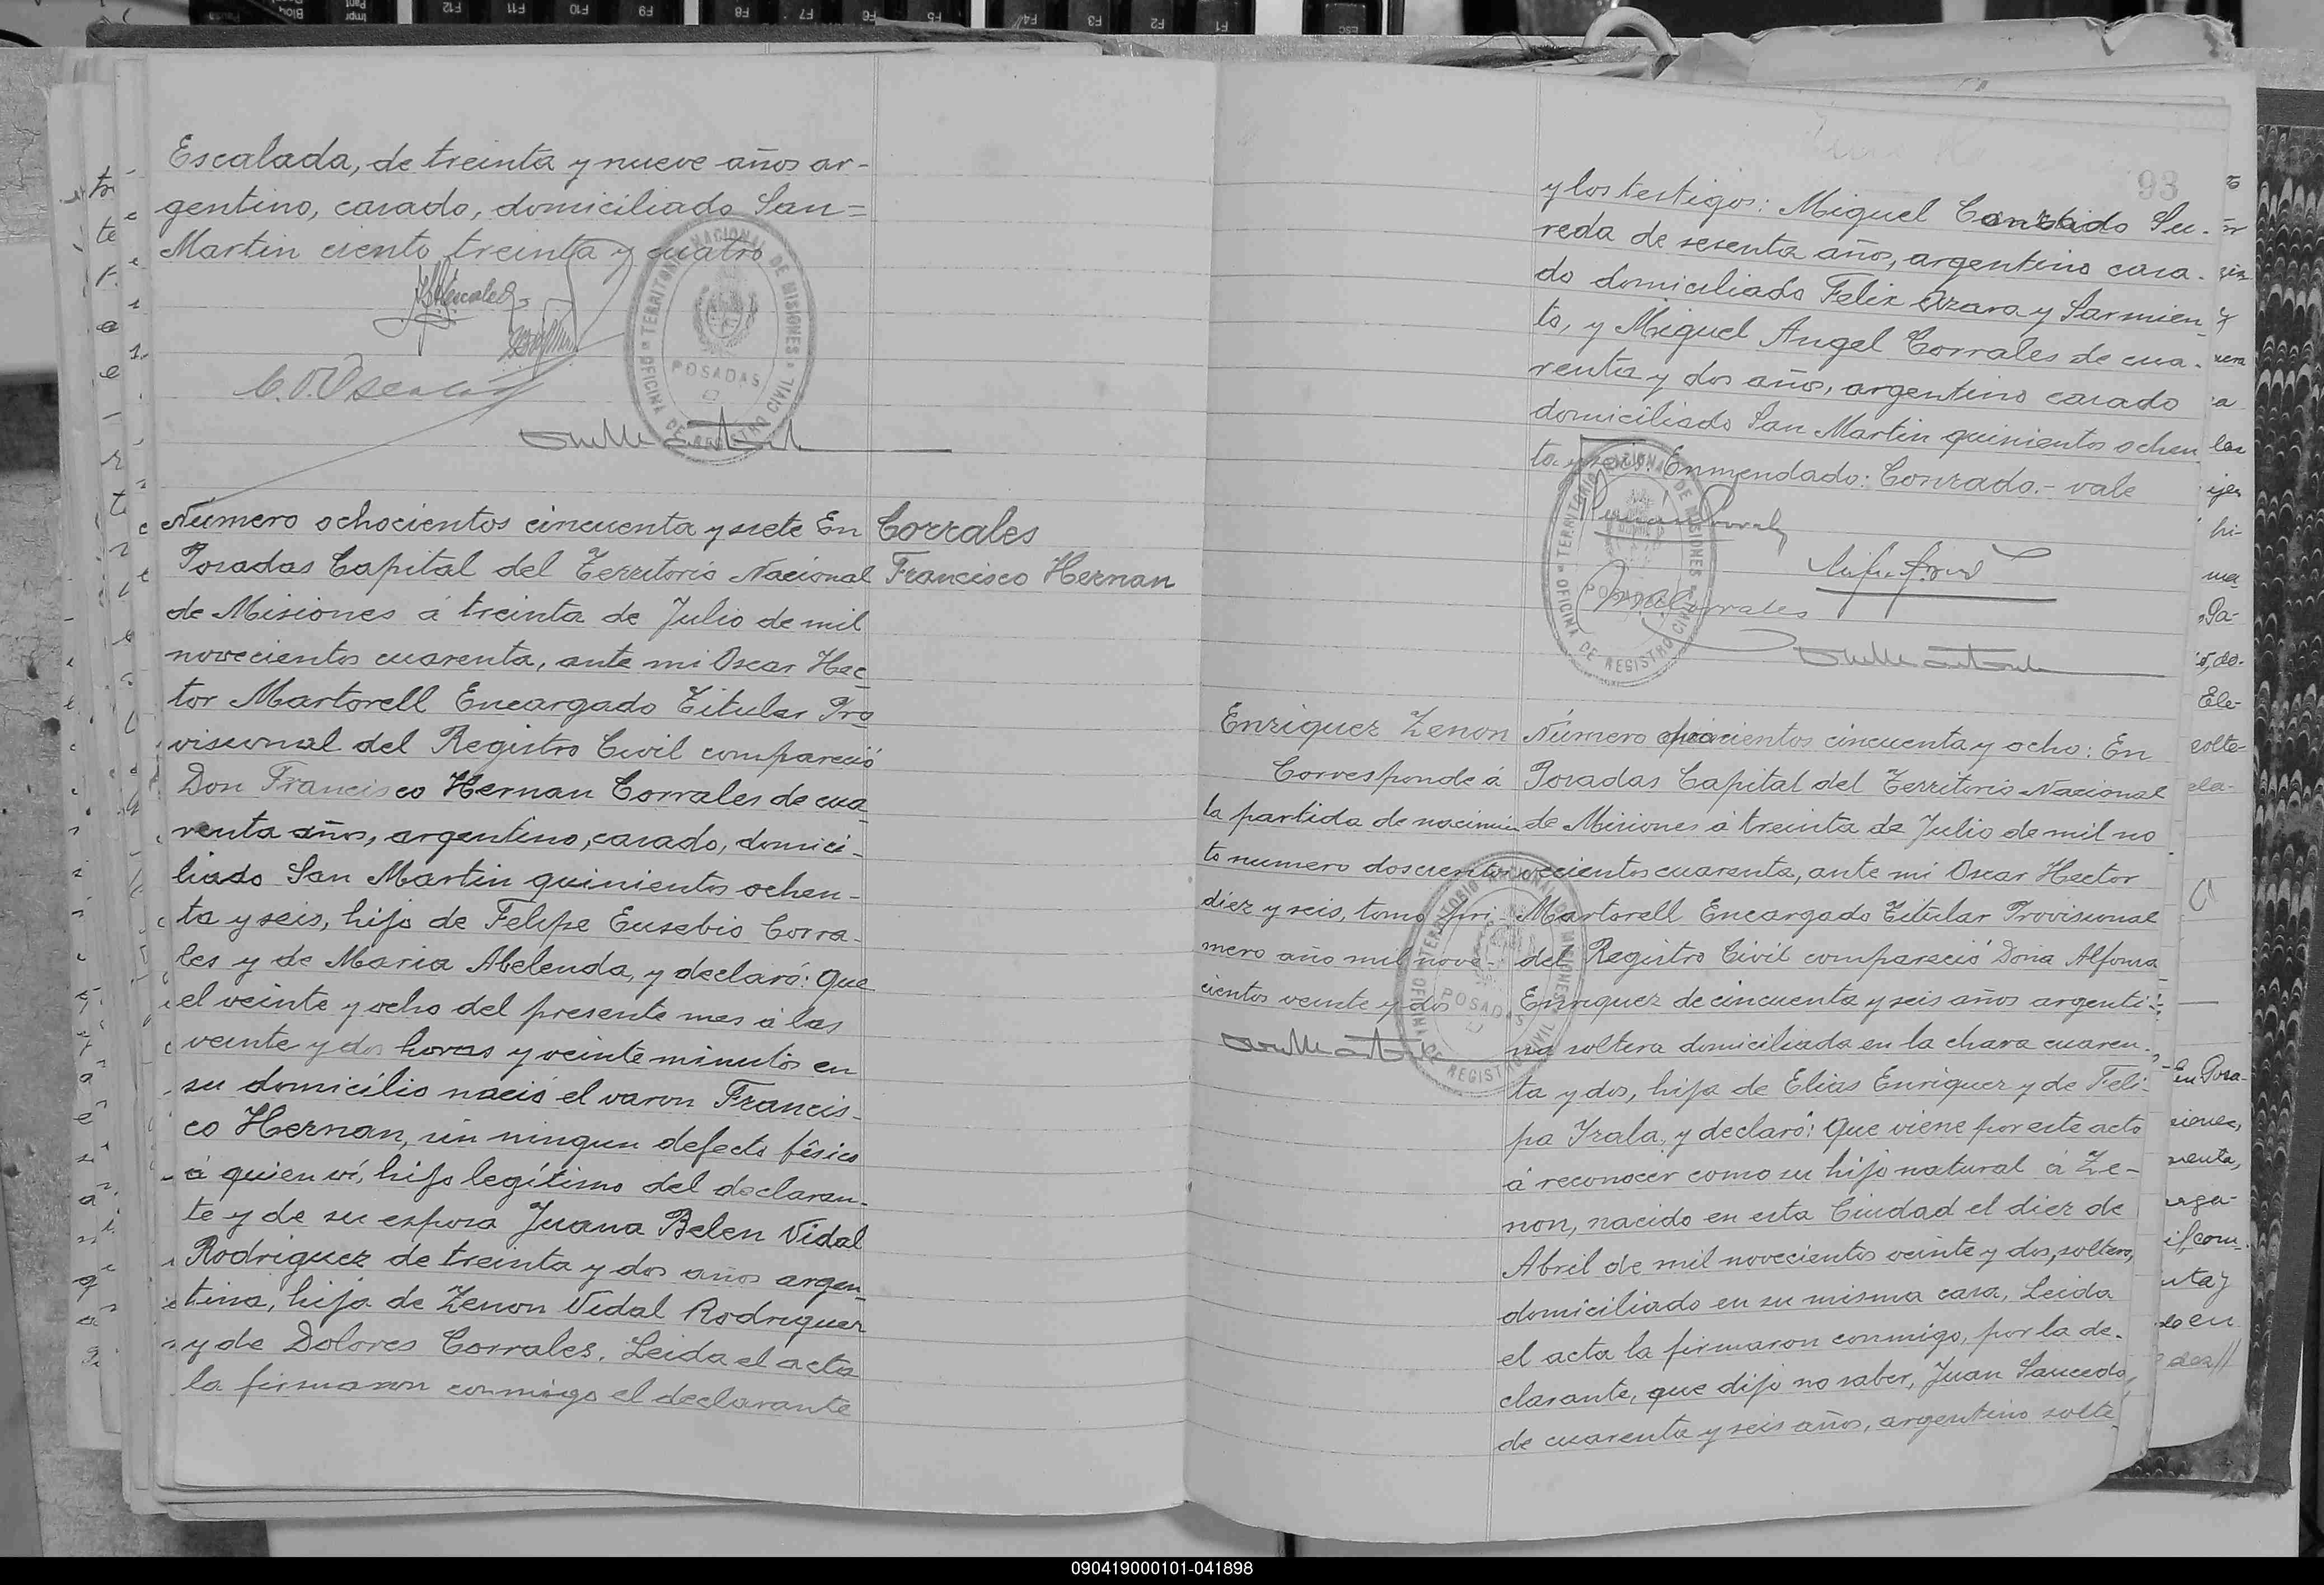 Escalada, de treinta y nueve años ar-
gentino, casado, domiciliado San=
Martin ciento treinta y cuatro
TERRITORIO NACIONAL DE MISIONES
POSADAS
OFICINA DE REGISTRO CIVIL
Número ochocientos cincuenta y siete En
Posadas Capital del Territorio Nacional
de Misiones á treinta de Julio de mil
novecientos cuarenta, ante mi Oscar Hec
tor Martorell Encargado Titular Pro
visional del Registro Civil compareció
Don Francisco Hernan Corrales de cua
renta años, argentino, casado, domici-
liado San Martin quinientos ochen-
ta y seis, hijo de Felipe Eusebio Corra-
les y de Maria Abelenda, y declaró: Que
el veinte y ocho del presente mes á las
veinte y dos horas y veinte minutos en
su domicilio nació el varon Francis-
co Hernan, sin ningun defecto físico
á quien ví, hijo legítimo del declaran-
te y de su esposa Juana Belen Vidal
Rodriguez de treinta y dos años argen-
tina, hija de Zenon Vidal Rodriguez
y de Dolores Corrales. Leida el acta
la firmaron conmigo el declarante
Corrales
Francisco Hernan
93
y los testigos: Miguel Conrado Su-
reda de sesenta años, argentino casa-
do domiciliado Felix Azara y Sarmien-
to, y Miguel Angel Corrales de cua-
renta y dos años, argentino casado
domiciliado San Martin quinientos ochen
ta y seis. Enmendado: Conrado.- vale
TERRITORIO NACIONAL DE MISIONES
POSADAS
OFICINA DE REGISTRO CIVIL
Enriquez Zenon
Corresponde á
la partida de nacimien
to numero doscientos
diez y seis, tomo pri-
mero año mil nove-
cientos veinte y dos
TERRITORIO NACIONAL DE MISIONES
POSADAS
OFICINA DE REGISTRO CIVIL
Número ochocientos cincuenta y ocho: En
Posadas Capital del Territorio Nacional
de Misiones á treinta de Julio de mil no
vecientos cuarenta, ante mi Oscar Hector
Martorell Encargado Titular Provisional
del Registro Civil compareció Doña Alfonsa
Enriquez de cincuenta y seis años argenti-
na soltera domiciliada en la chara cuaren-
ta y dos, hija de Elias Enriquez y de Feli-
pa Irala, y declaró: Que viene por este acto
á reconocer como su hijo natural á Ze-
non, nacido en esta Ciudad el diez de
Abril de mil novecientos veinte y dos, soltero,
domiciliado en su misma casa, Leida
el acta la firmaron conmigo, por la de-
clarante, que dijo no saber, Juan Saucedo
de cuarenta y seis años, argentino solte-
090419000101-041898